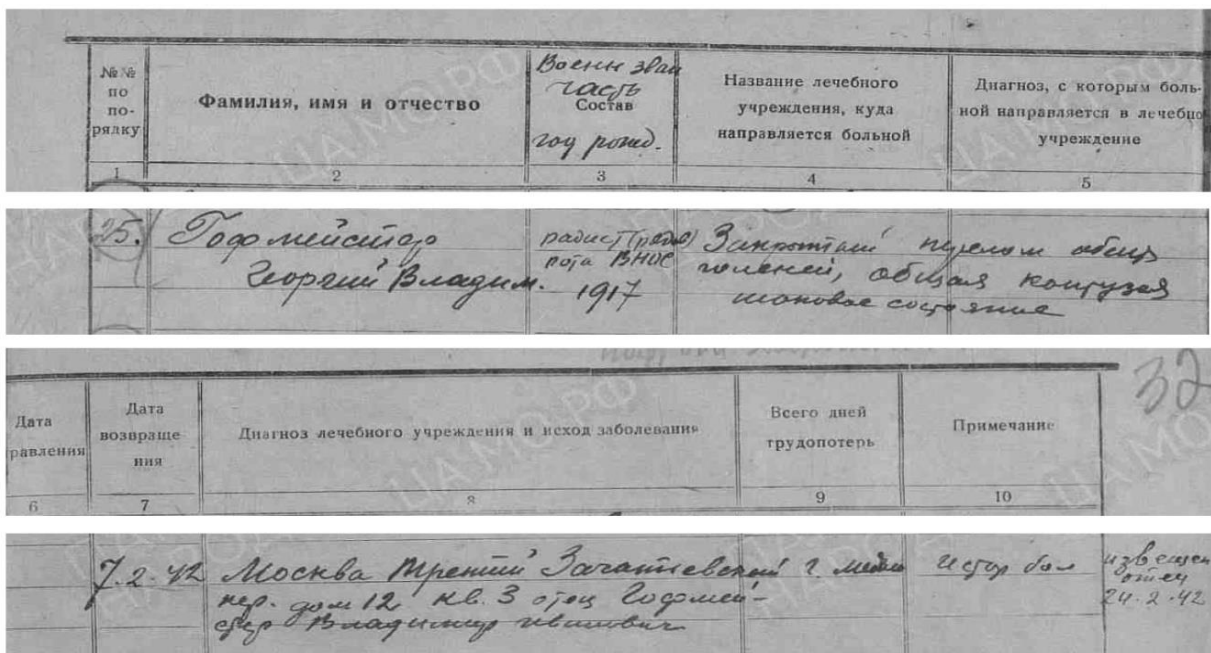 №№ по по- рядку
Фамилия, имя и отчество
Военн зван
часть
Состав
год рожд.
Название лечебного
учреждения, куда
направляется больной
Диагноз, с которым боль-
ной направляется в лечебно
учреждение
1 2 3 4 5
25. Гофмейстер
Георгий Владим.
радист
рота ВНОС
1917
Закрытый перелом обеих
голеней, общая контузия
шоковое состояние
32
Дата
равления
Дата
возвраще
ния
Диагноз лечебного учреждения и исход заболевания
Всего дней
трудопотерь
Примечание
6 7 8 9 10
7.2.42 Москва Третий Зачатьевский
пер. дом 12 кв. 3 отец Гофмей-
стер Владимир Иванович
извещен
отец
24.2.42
ЦАМО РФ